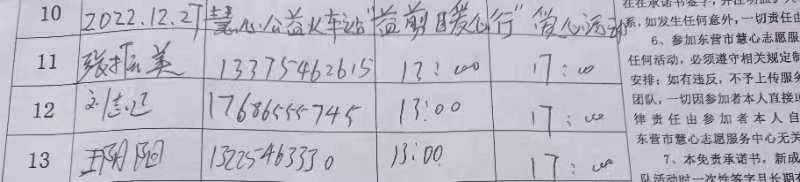 10 2022.12.27 慧心公益火车站"益剪暖心行"爱心活动
11 张振美 13375462615 13:00 17:00
12 刘志 17686555745 13:00 17:00
13 王阳阳 13225463330 13:00 17:00
系,如发生任何意外,一切责任由
6、参加东营市慧心志愿服
任何活动,必须遵守相关规定制
安排;如有违反,不予上传服务
团队,一切因参加者本人直接或
律责任由参加者本人自
东营市慧心志愿服务中心无关
7、本免责承诺书,新成
队活动时一次性签字且长期有